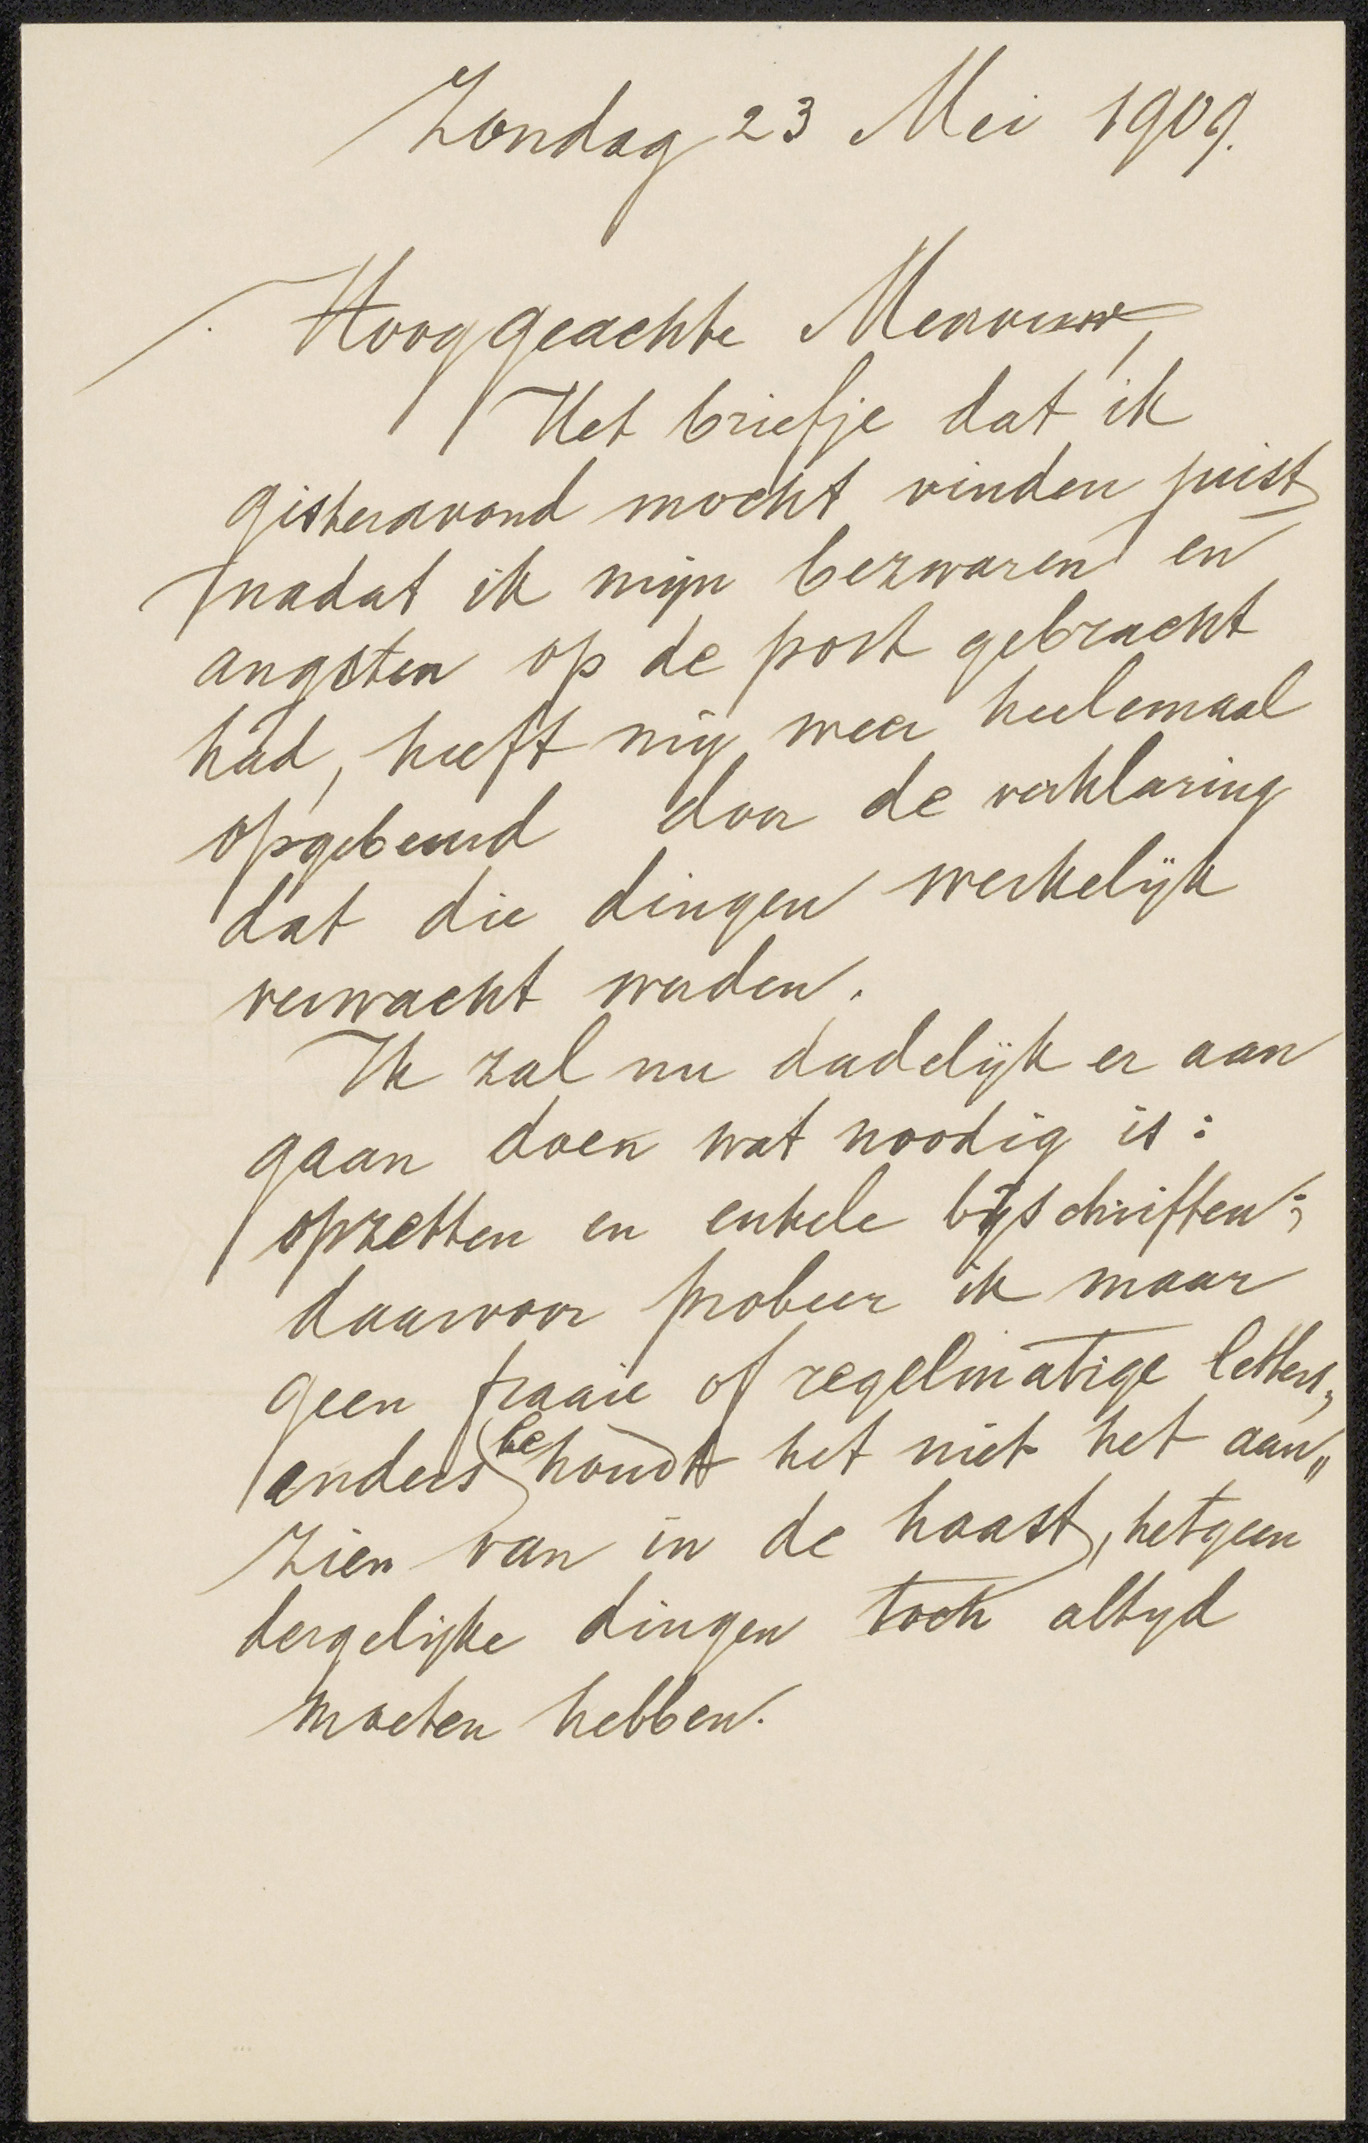 Zondag 23 Mei 1909.
Hooggeachte Mevrouw,
Het briefje dat ik
gisteravond mocht vinden juist
nadat ik mijn bezwaren en
angsten op de post gebracht
had, heeft mij weer heelemaal
opgebeurd door de verklaring
dat die dingen werkelijk
verwacht werden.
Ik zal nu dadelijk er aan
gaan doen wat noodig is:
opzetten en enkele bijschriften;
daarvoor probeer ik maar
geen fraaie of regelmatige letters,
anders behoudt het niet het aan„
zien van in de haast, hetgeen
dergelijke dingen toch altijd
moeten hebben.